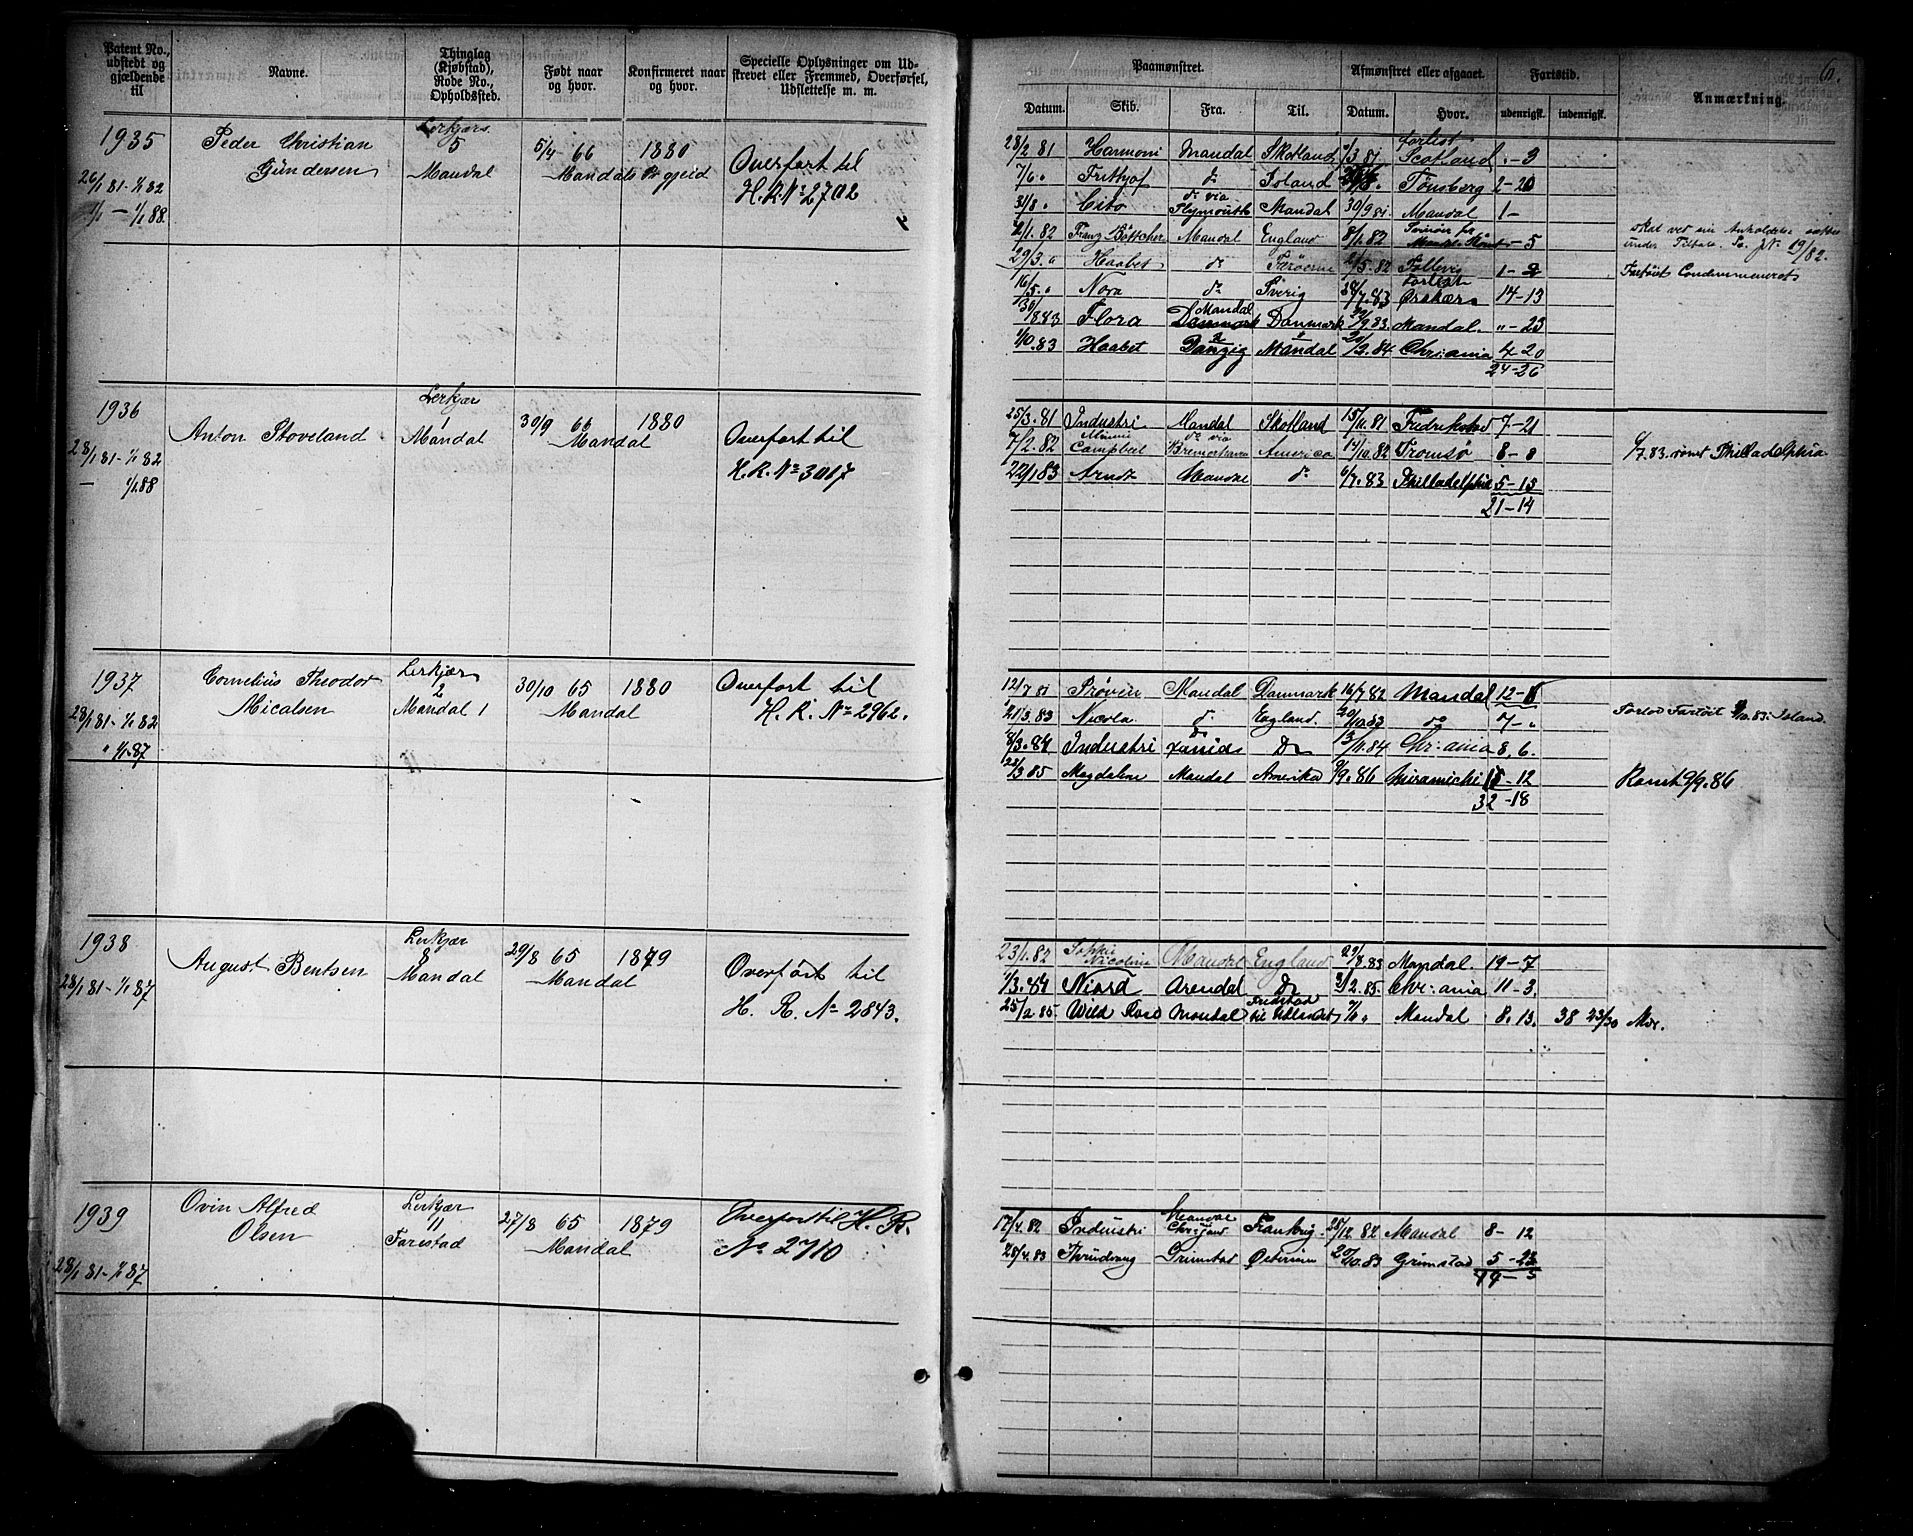 Patent No., udstedt og gjældende til
Navne.
Thinglag (Kjøbstad), Rode No., Opholdssted.
Født naar og hvor.
Konfirmeret naar og hvor.
Specielle Oplysninger om Udskrevet eller Fremmed, Overførsel, Udslettelse m. m.
Paamønstret.
Afmønstret eller afgaaet.
Fartstid.
Anmærkning.
Datum. Skib. Fra. Til. Datum. Hvor. udenrigsk. indenrigsk.
1935
26/1 81 - 1/1 82
1/1 — 1/1 88
Peder Christian
Gundersen
5
Mandal
5/4 66
Mandal
1880
Overført til
H. R. No 2702
28/2 81 Harmoni Mandal Skotland 81 Forlist Scotland - 3
7/6 " Frithjof do Island Tønsberg 2-20
31/8 " Cito do via Plymouth Mandal 30/9 81 Mandal 1-
2/1. 82 Franz Böttcher Mandal England 8/1. 82 - 5
29/3. " Haabet do 2/5. 82 1-
16/5. " Nora do Sverig 7.83 Forlist 14-13
30/1 83 Flora Mandal Danmark 9 83 Mandal. "-23
1/10. 83 Haabet Danzig Mandal 2. 84 Chr:ania 4 20
24-26
19/82.
Fartöiet Condemneret
1936
28/1 81 - 1/1 82
— 1/1 88
Anton Stoveland
Lerkjær
1
Mandal
30/9 66
Mandal
1880
Overført til
H. R. No 3017
25/3. 81 Industri Mandal Skotland 15/11 81 7-21
7/2. 82 Minnie Campbel do via Bremerhaven America 14/10. 82 Tromsø 8-8
22/1 83 Arndt Mandal do 6/7. 83 Philladelphia 5-15
21-14
6/7. 83. rømt Philladelphia
1937
28/1 81 - 1/1 82
" 1/1. 87
Cornelius Theodor
Micalsen
Lerkjær
2
Mandal 1
30/10 65
Mandal
1880
Overført til
H. R. No 2962.
12/7 81 Prøven Mandal Danmark 16/7. 82 Mandal
21/3. 83 Nicola do England. 20/10. 83 do 7-"
8/3. 84 Industri do 13/11. 84 Chr:ania 8. 6.
3. 85 Magdalene Mandal Amerika 9/9. 86 Miramichi 15-12
32-18
Forlod Fartöit 10. 83. Island
Rømt 9/9. 86
1938
28/1 81 - 1/1 87
August Bentsen
Lerkjær
8
Mandal
29/8 65
Mandal
1879
Overført til
H. R. No 2843.
23/1. 82 Sophie Nicoline Mandal England 29/8. 83 Mandal. 19-7
1/3. 84 Niord Arendal Do 2. 85. Chr:ania 11-3.
25/2. 85 Wild Rose Mandal Fredrstad til Udlandet Mandal 8. 13. 38 23/30 Mdr.
1939
28/1 81 - 1/1 87
Ovin Alfred
Olsen
Lerkjær
11
Farestad
27/8 65
Mandal
1879
Overført til H. R.
No 2710
17/4. 82 Industri Mandal Chr:sand Frankrig 28/12. 82 Mandal 8-12
28/4. 83 Thrudvang Grimstad Østersøen 20/10. 83 Grimstad 5-23
14-5